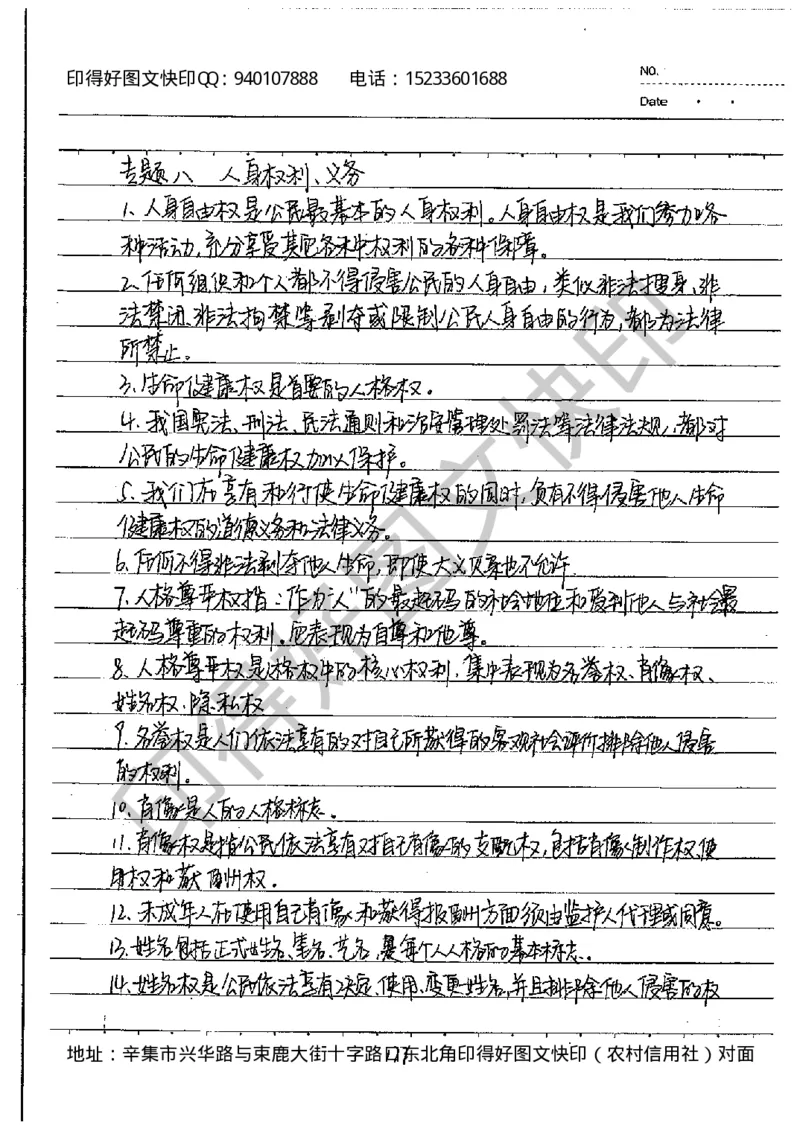 印得好图文快印QQ：940107888 电话：15233601688
NO.
Date
专题八 人身权利、义务
1、人身自由权是公民最基本的人身权利。人身自由权是我们参加各
种活动，充分享受其他各种权利的各种保障。
2、任何组织和个人都不得侵害公民的人身自由，类似非法搜身、非
法禁闭、非法拘禁等剥夺或限制公民人身自由的行为，都为法律
所禁止。
3、生命健康权是首要的人格权。
4、我国宪法、刑法、民法通则和治安管理处罚法等法律法规，都对
公民的生命健康权加以保护。
5、我们在享有和行使生命健康权的同时，负有不得侵害他人生命
健康权的道德义务和法律义务。
6、任何不得非法剥夺他人生命，即使大义灭亲也不允许
7、人格尊严权指：作为"人"的最起码的社会地位和受到他人与社会最
起码尊重的权利。应表现为自尊和他尊。
8、人格尊严权是人格权中的核心权利，集中表现为名誉权、肖像权、
姓名权、隐私权
9、名誉权是人们依法享有的对自己所获得的客观社会评价排除他人侵害
的权利。
10、肖像是人的人格标志。
11、肖像权是指公民依法享有对自己肖像的支配权，包括肖像制作权、使
用权和获酬权。
12、未成年人在使用自己肖像和获得报酬方面须由监护人代理或同意。
13、姓名包括正式姓名、笔名、艺名，是每个人人格的基本标志。
14、姓名权是公民依法享有决定、使用、变更姓名，并且排除他人侵害的权
地址：辛集市兴华路与束鹿大街十字路口东北角印得好图文快印（农村信用社）对面
印得好图文快印